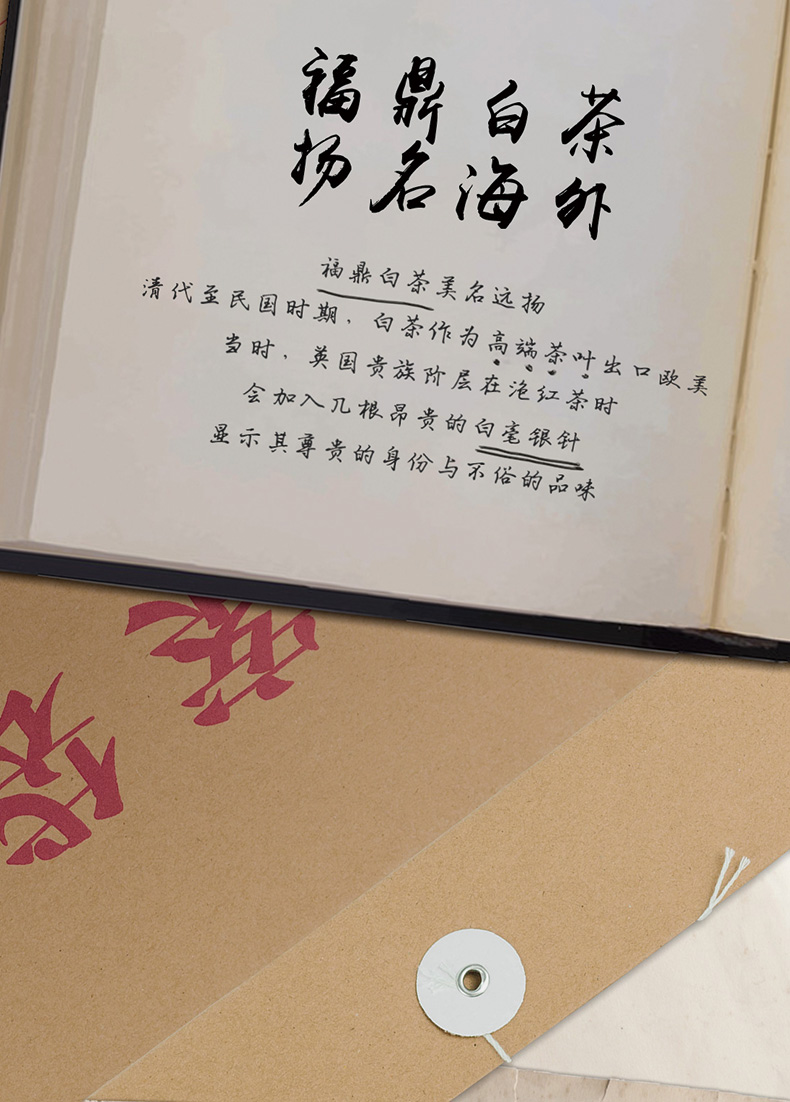 福鼎白茶
扬名海外
福鼎白茶美名远扬
清代至民国时期，白茶作为高端茶叶出口欧美
当时，英国贵族阶层在沧红茶时
会加入几根昂贵的白毫银针
显示其尊贵的身份与不俗的品味
袋